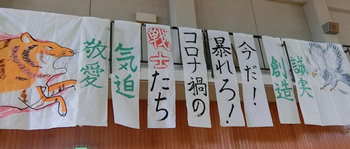 誠実
創造
今だ！
暴れろ！
コロナ禍の
戦士たち
気迫
敬愛